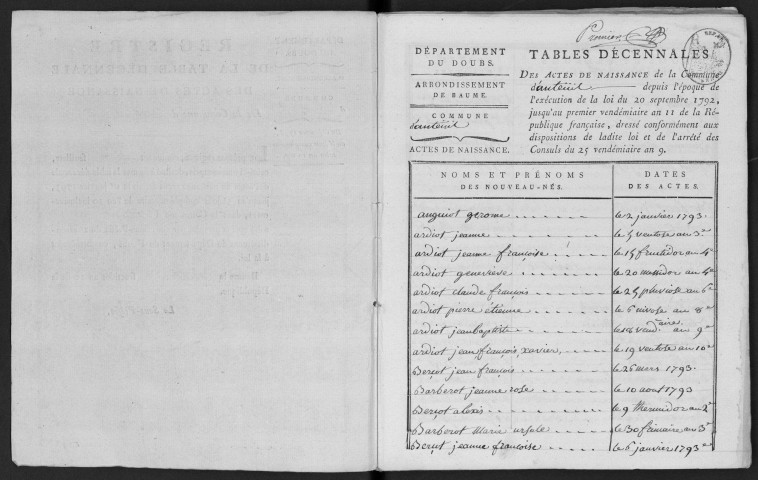 Premier
DÉPARTEMENT
DU DOUBS.
ARRONDISSEMENT
DE BAUME.
COMMUNE
d'auteuil
ACTES DE NAISSANCE.
TABLES DÉCENNALES
DES ACTES DE NAISSANCE de la Commune
d'auteuil depuis l'époque de
l'exécution de la loi du 20 septembre 1792,
jusqu'au premier vendémiaire an 11 de la Ré-
publique française, dressé conformément aux
dispositions de ladite loi et de l'arrêté des
Consuls du 25 vendémiaire an 9.
NOMS ET PRÉNOMS
DES NOUVEAU-NÉS.
DATES
DES ACTES.
auguiot gerome le 2 janvier 1793.
ardiot jeanne le 5 ventose an 3e
ardiot jeanne françoise le 15 fructidor an 4e
ardiot geneviève le 20 messidor an 4e
ardiot claude françois le 25 pluviose an 6e
ardiot pierre étienne le 6 nivose an 8e
ardiot jeanbaptiste le 18 vendémiaire an 9e
ardiot jean françois xavier le 19 ventose an 10e
Berçot jean françois le 26 mars 1793.
Barberot jeanne rose le 10 aout 1793
Berçot alexis le 9 thermidor an 2e
Barberot Marie ursule le 30 frimaire an 3e
Berçot jeanne françoise le 6 janvier 1793